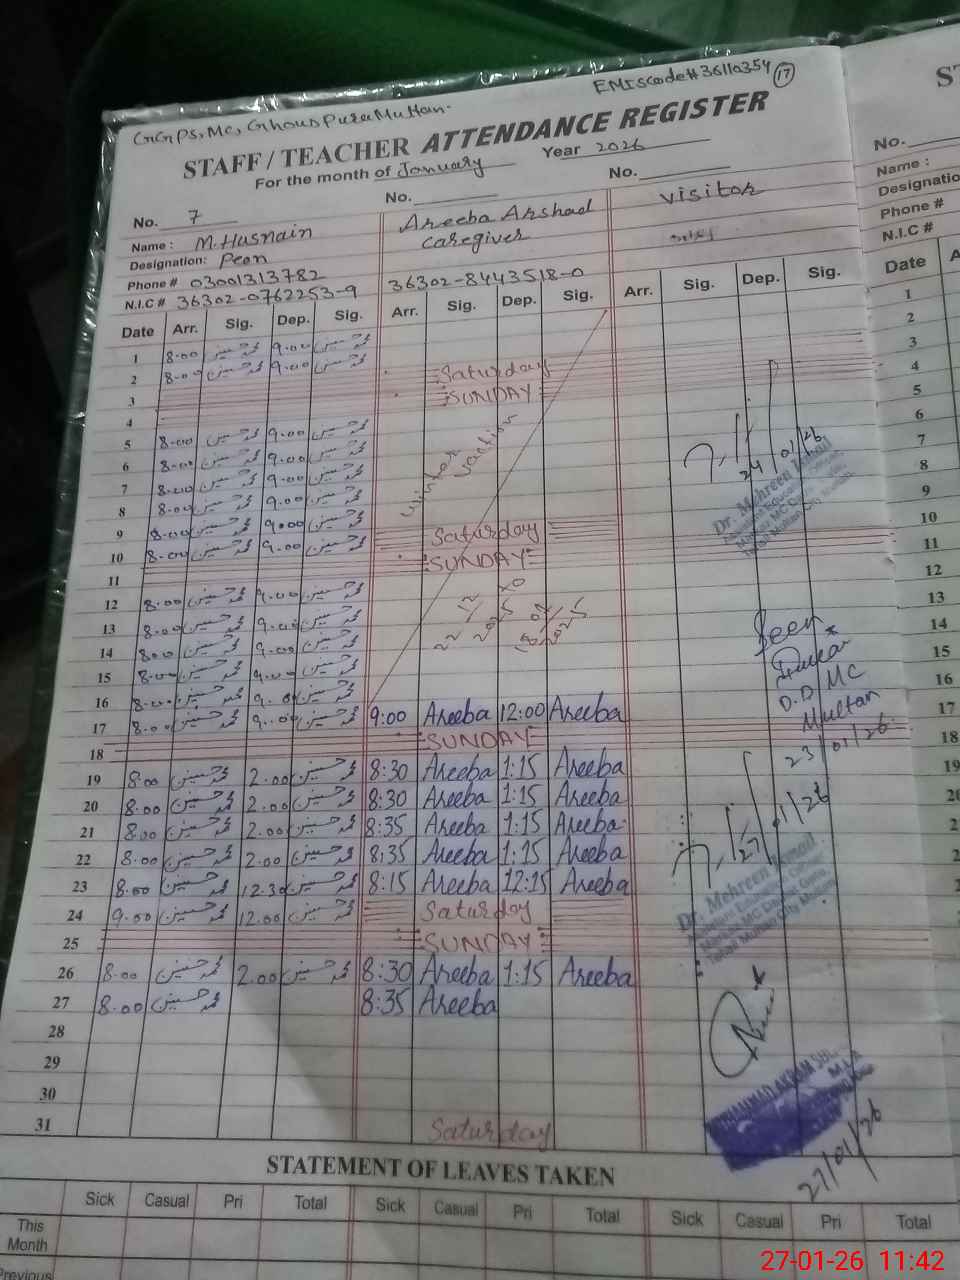 GGPS, MC, Ghous Pura Multan.
EMIS code # 36110354
17
STAFF / TEACHER ATTENDANCE REGISTER
For the month of January Year 2026
No. 7
No.
No.
Name : M. Husnain
Areeba Arshad
visitor
Designation: Peon
Caregiver
Phone # 03001313782
N.I.C # 36302-0762253-9
36302-8443518-0
Date Arr. Sig. Dep. Sig. Arr. Sig. Dep. Sig. Arr. Sig. Dep. Sig.
1 8:00 محمد حسنین 9:00 محمد حسنین
2 8:00 محمد حسنین 9:00 محمد حسنین
Saturday
3
SUNDAY
4
5 8:00 محمد حسنین 9:00 محمد حسنین
6 8:00 محمد حسنین 9:00 محمد حسنین
7 8:00 محمد حسنین 9:00 محمد حسنین
8 8:00 محمد حسنین 9:00 محمد حسنین
9 8:00 محمد حسنین 9:00 محمد حسنین
Winter vaction
Saturday
10 8:00 محمد حسنین 9:00 محمد حسنین
SUNDAY
11
12 8:00 محمد حسنین 9:00 محمد حسنین
13 8:00 محمد حسنین 9:00 محمد حسنین
14 8:00 محمد حسنین 9:00 محمد حسنین
15 8:00 محمد حسنین 9:00 محمد حسنین
16 8:00 محمد حسنین 9:00 محمد حسنین
17 8:00 محمد حسنین 9:00 محمد حسنین 9:00 Areeba 12:00 Areeba
18 SUNDAY
19 8:00 محمد حسنین 2:00 محمد حسنین 8:30 Areeba 1:15 Areeba
20 8:00 محمد حسنین 2:00 محمد حسنین 8:30 Areeba 1:15 Areeba
21 8:00 محمد حسنین 2:00 محمد حسنین 8:35 Areeba 1:15 Areeba
22 8:00 محمد حسنین 2:00 محمد حسنین 8:35 Areeba 1:15 Areeba
23 8:00 محمد حسنین 12:30 محمد حسنین 8:15 Areeba 12:15 Areeba
24 9:00 محمد حسنین 12:00 محمد حسنین Saturday
25 SUNDAY
26 8:00 محمد حسنین 2:00 محمد حسنین 8:30 Areeba 1:15 Areeba
27 8:00 محمد حسنین 8:35 Areeba
28
29
30
31 Saturday
24/01/26
Dr. Mehreen Ismail
Seen
D.D MC
Multan
23/01/26
27/01/26
Dr. Mehreen Ismail
27/01/26
STATEMENT OF LEAVES TAKEN
Sick Casual Pri Total Sick Casual Pri Total Sick Casual Pri Total
This
Month
Previous
No.
Name :
Designatio
Phone #
N.I.C #
Date
1
2
3
4
5
6
7
8
9
10
11
12
13
14
15
16
17
18
19
27-01-26 11:42